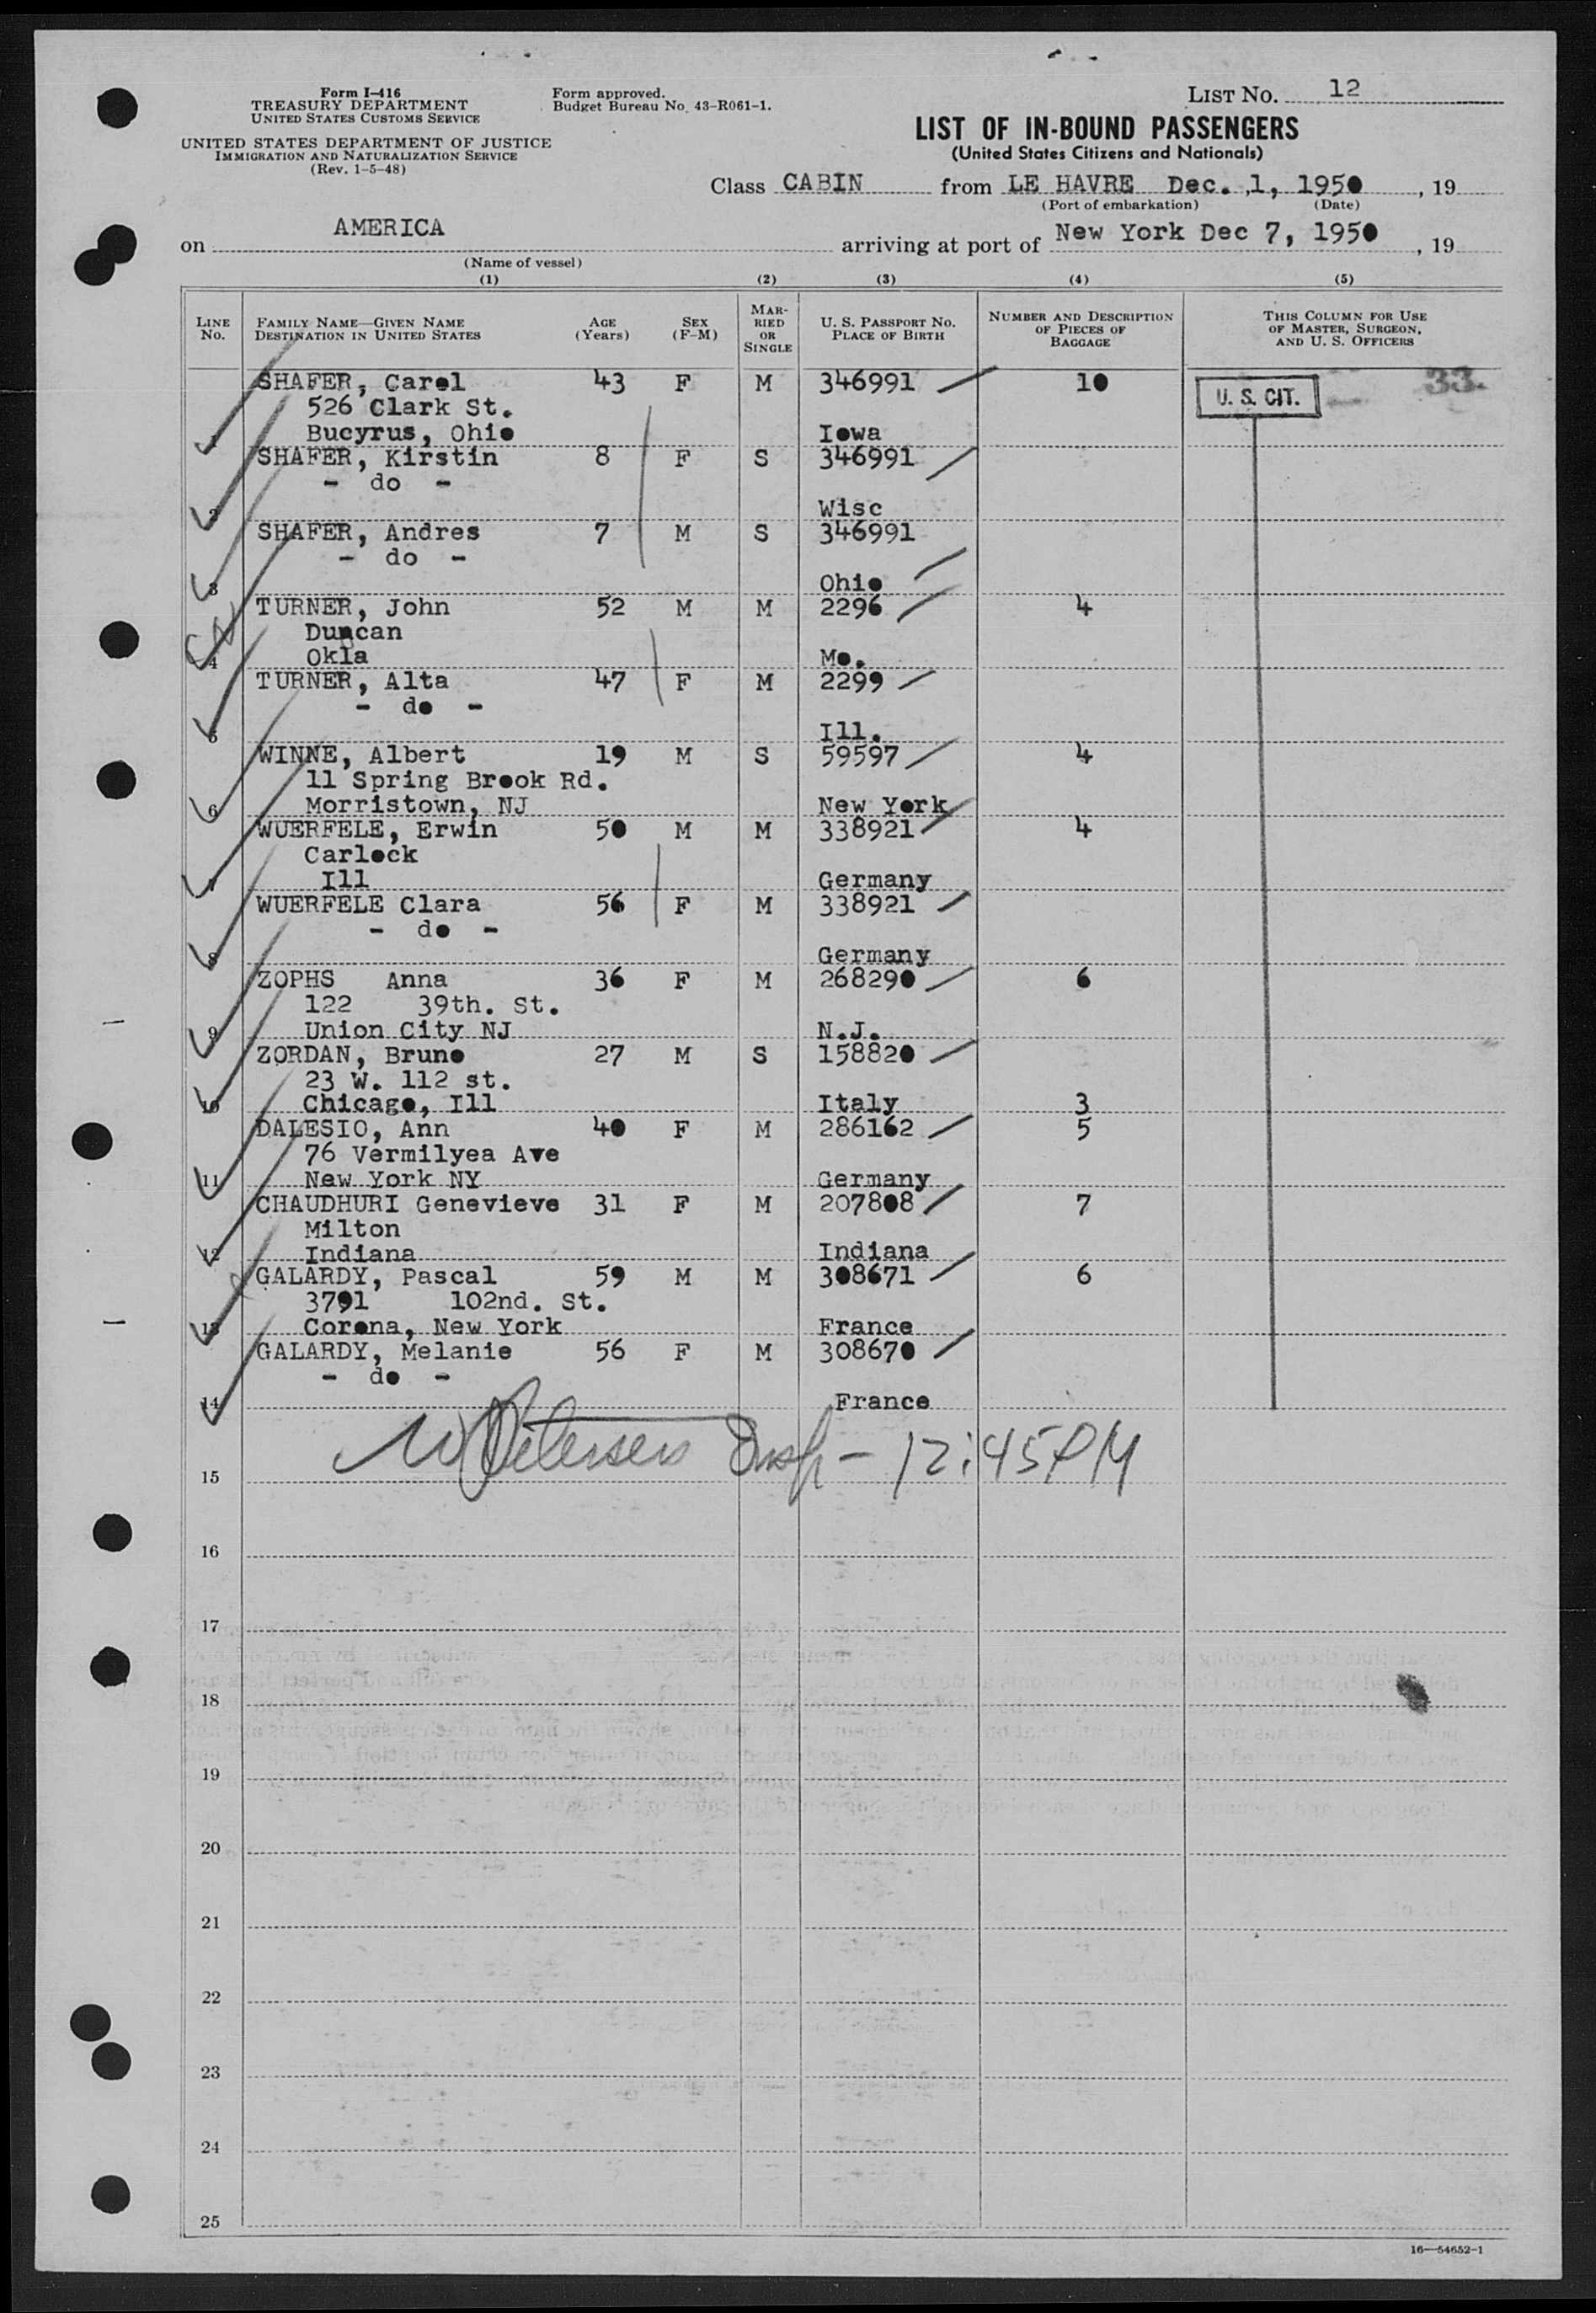 Form I-416
TREASURY DEPARTMENT
UNITED STATES CUSTOMS SERVICE
UNITED STATES DEPARTMENT OF JUSTICE
IMMIGRATION AND NATURALIZATION SERVICE
(Rev. 1-5-48)
Form approved.
Budget Bureau No. 43-R061-1.
LIST NO. 12
LIST OF IN-BOUND PASSENGERS
(United States Citizens and Nationals)
Class CABIN from LE HAVRE Dec. 1, 1950, 19
(Port of embarkation) (Date)
on AMERICA arriving at port of New York Dec 7, 1950, 19
(Name of vessel)
(1) (2) (3) (4) (5)
LINE NO. FAMILY NAME—GIVEN NAME DESTINATION IN UNITED STATES AGE (Years) SEX (F-M) MARRIED OR SINGLE U. S. PASSPORT NO. PLACE OF BIRTH NUMBER AND DESCRIPTION OF PIECES OF BAGGAGE THIS COLUMN FOR USE OF MASTER, SURGEON, AND U. S. OFFICERS
SHAFER, Carol 43 F M 346991 10 U. S. CIT. 33.
526 Clark St.
1 Bucyrus, Ohio Iowa
SHAFER, Kirstin 8 F S 346991
- do -
2 Wisc
SHAFER, Andres 7 M S 346991
- do -
3 Ohio
TURNER, John 52 M M 2296 4
Duncan
4 Okla Mo.
TURNER, Alta 47 F M 2299
- do -
5 Ill.
WINNE, Albert 19 M S 59597 4
11 Spring Brook Rd.
6 Morristown, NJ New York
WUERFELE, Erwin 50 M M 338921 4
Carlock
7 Ill Germany
WUERFELE Clara 56 F M 338921
- do -
8 Germany
ZOPHS Anna 36 F M 268290 6
122 39th. St.
9 Union City NJ N.J.
ZORDAN, Bruno 27 M S 158820
23 W. 112 st.
10 Chicago, Ill Italy 3
DALESIO, Ann 40 F M 286162 5
76 Vermilyea Ave
11 New York NY Germany
CHAUDHURI Genevieve 31 F M 207808 7
Milton
12 Indiana Indiana
GALARDY, Pascal 59 M M 308671 6
3791 102nd. St.
13 Corona, New York France
GALARDY, Melanie 56 F M 308670
- do -
14 France
15 Petersen Insp - 12:45 PM
16
17
18
19
20
21
22
23
24
25
16—54652-1